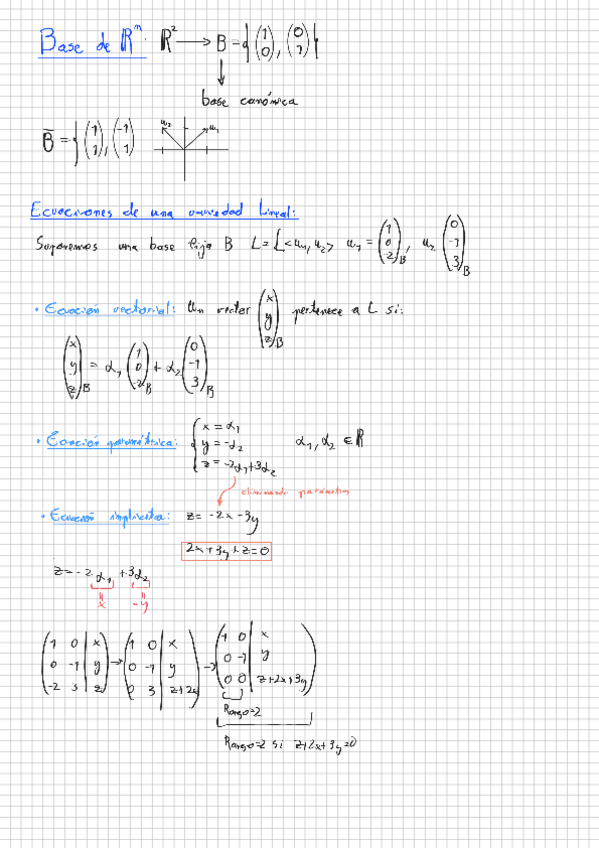 Base de ℝⁿ: ℝ² → B = {(1 0), (0 1)}
base canónica
B̄ = {(1 1), (-1 1)
u₂ u₁
Ecuaciones de una variedad lineal:
Suponemos una base fija B L = L<u₁, u₂> u₁ = (1 0 -2)B, u₂ (0 -1 3)B
• Ecuación vectorial: Un vector (x y z)B pertenece a L si:
(x y z)B = α₁ (1 0 -2)B + α₂ (0 -1 3)B
• Ecuación paramétrica: { x = α₁ y = -α₂ z = -2α₁ + 3α₂ α₁, α₂ ∈ ℝ
eliminando parámetros
• Ecuación implícita: z = -2x - 3y
2x + 3y + z = 0
z = -2 α₁ + 3α₂
= x = -y
(1 0 | x, 0 -1 | y, -2 3 | z) → (1 0 | x, 0 -1 | y, 0 3 | z+2x) → (1 0 | x, 0 -1 | y, 0 0 | z+2x+3y)
Rango=2
Rango=2 si z+2x+3y=0